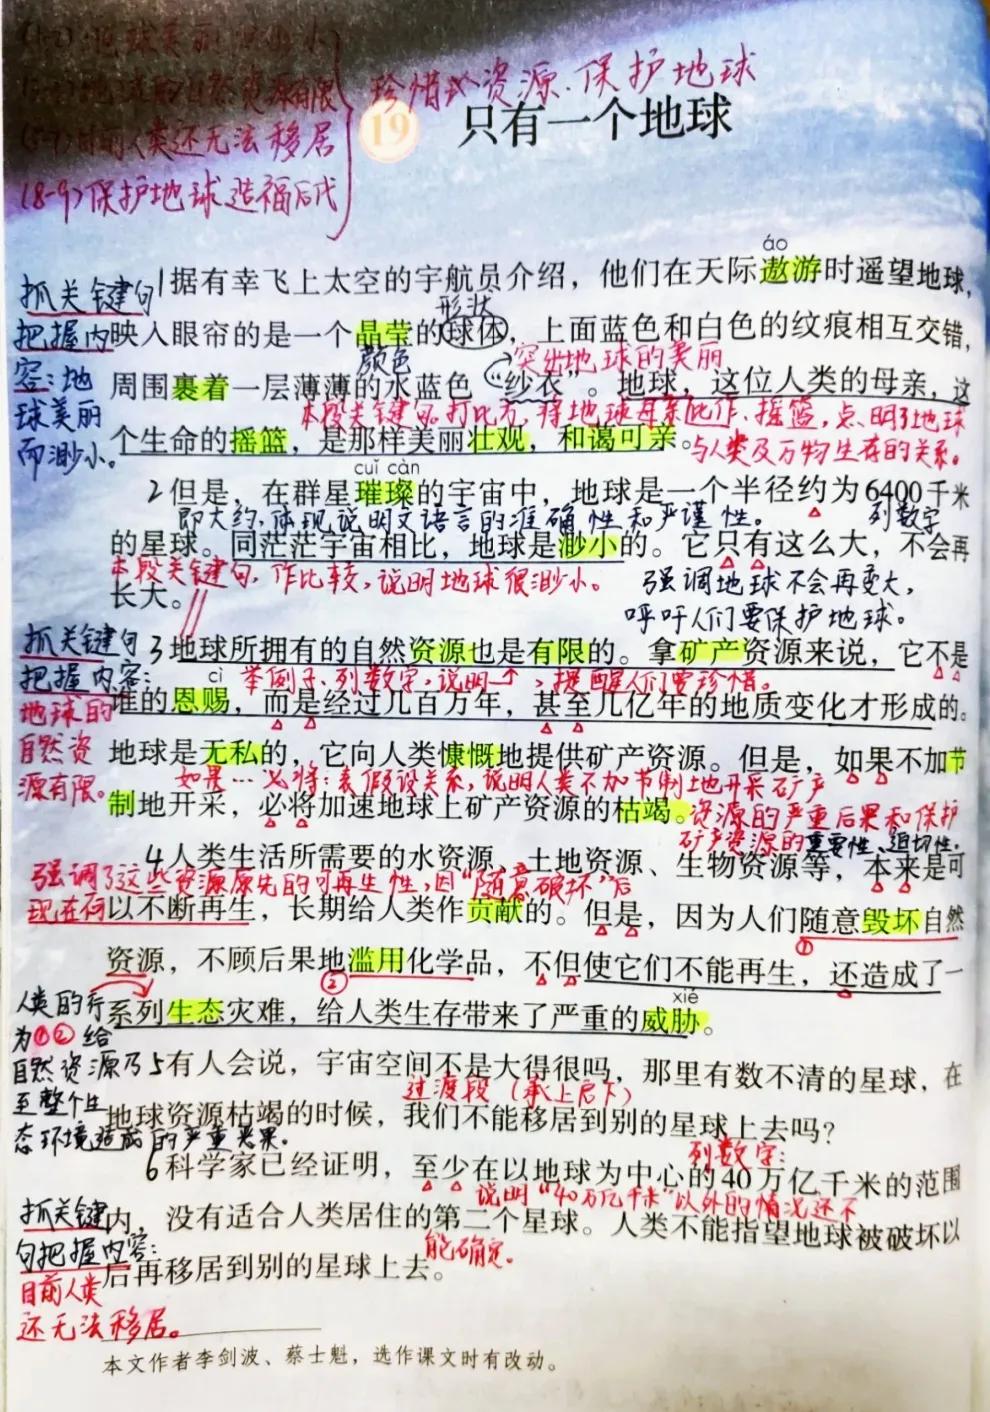 (1-2)地球美丽而渺小
自然资源有限
(5-7)目前人类还无法移居
(8-9)保护地球造福后代
珍惜 资源、保护地球
19 只有一个地球
áo
1据有幸飞上太空的宇航员介绍，他们在天际遨游时遥望地球，
抓关键句
形状
把握内
映入眼帘的是一个晶莹的球体，上面蓝色和白色的纹痕相互交错，
颜色
突出地球的美丽
容：地
周围裹着一层薄薄的水蓝色“纱衣”。地球，这位人类的母亲，这
本段关键句。打比方，将地球比作母亲、摇篮，点明了地球
球美丽
个生命的摇篮，是那样美丽壮观，和蔼可亲。
与人类及万物生存的关系。
而渺小。
cuǐ càn
2但是，在群星璀璨的宇宙中，地球是一个半径约为6400千米
即大约，体现说明文语言的准确性和严谨性。
列数字
的星球。同茫茫宇宙相比，地球是渺小的。它只有这么大，不会再
本段关键句，作比较，说明地球很渺小。
强调地球不会再变大，
长大。
呼吁人们要保护地球。
抓关键句
3地球所拥有的自然资源也是有限的。拿矿产资源来说，它不是
把握内容：
cì
举例子、列数字，说明↑，提醒人们要珍惜。
地球的
谁的恩赐，而是经过几百万年，甚至几亿年的地质变化才形成的。
自然资
地球是无私的，它向人类慷慨地提供矿产资源。但是，如果不加节
源有限。
如果…必将：表假设关系，说明人类不加节制地开采矿产
制地开采，必将加速地球上矿产资源的枯竭。
资源的严重后果和保护
矿产资源的重要性、迫切性。
4人类生活所需要的水资源、土地资源、生物资源等，本来是可
强调了这些资源原先的可再生性，因“随意破坏”后
现在何
以不断再生，长期给人类作贡献的。但是，因为人们随意毁坏自然
①
资源，不顾后果地滥用化学品，不但使它们不能再生，还造成了一
②
xié
人类的行
系列生态灾难，给人类生存带来了严重的威胁。
为①②给
自然资源乃
5有人会说，宇宙空间不是大得很吗，那里有数不清的星球，在
过渡段（承上启下）
至整个生
地球资源枯竭的时候，我们不能移居到别的星球上去吗？
态环境造成的严重恶果。
列数字：
6科学家已经证明，至少在以地球为中心的40万亿千米的范围
说明“40万亿千米”以外的情况还不
抓关键
内，没有适合人类居住的第二个星球。人类不能指望地球被破坏以
能确定。
句把握内容：
后再移居到别的星球上去。
目前人类
还无法移居。
本文作者李剑波、蔡士魁，选作课文时有改动。